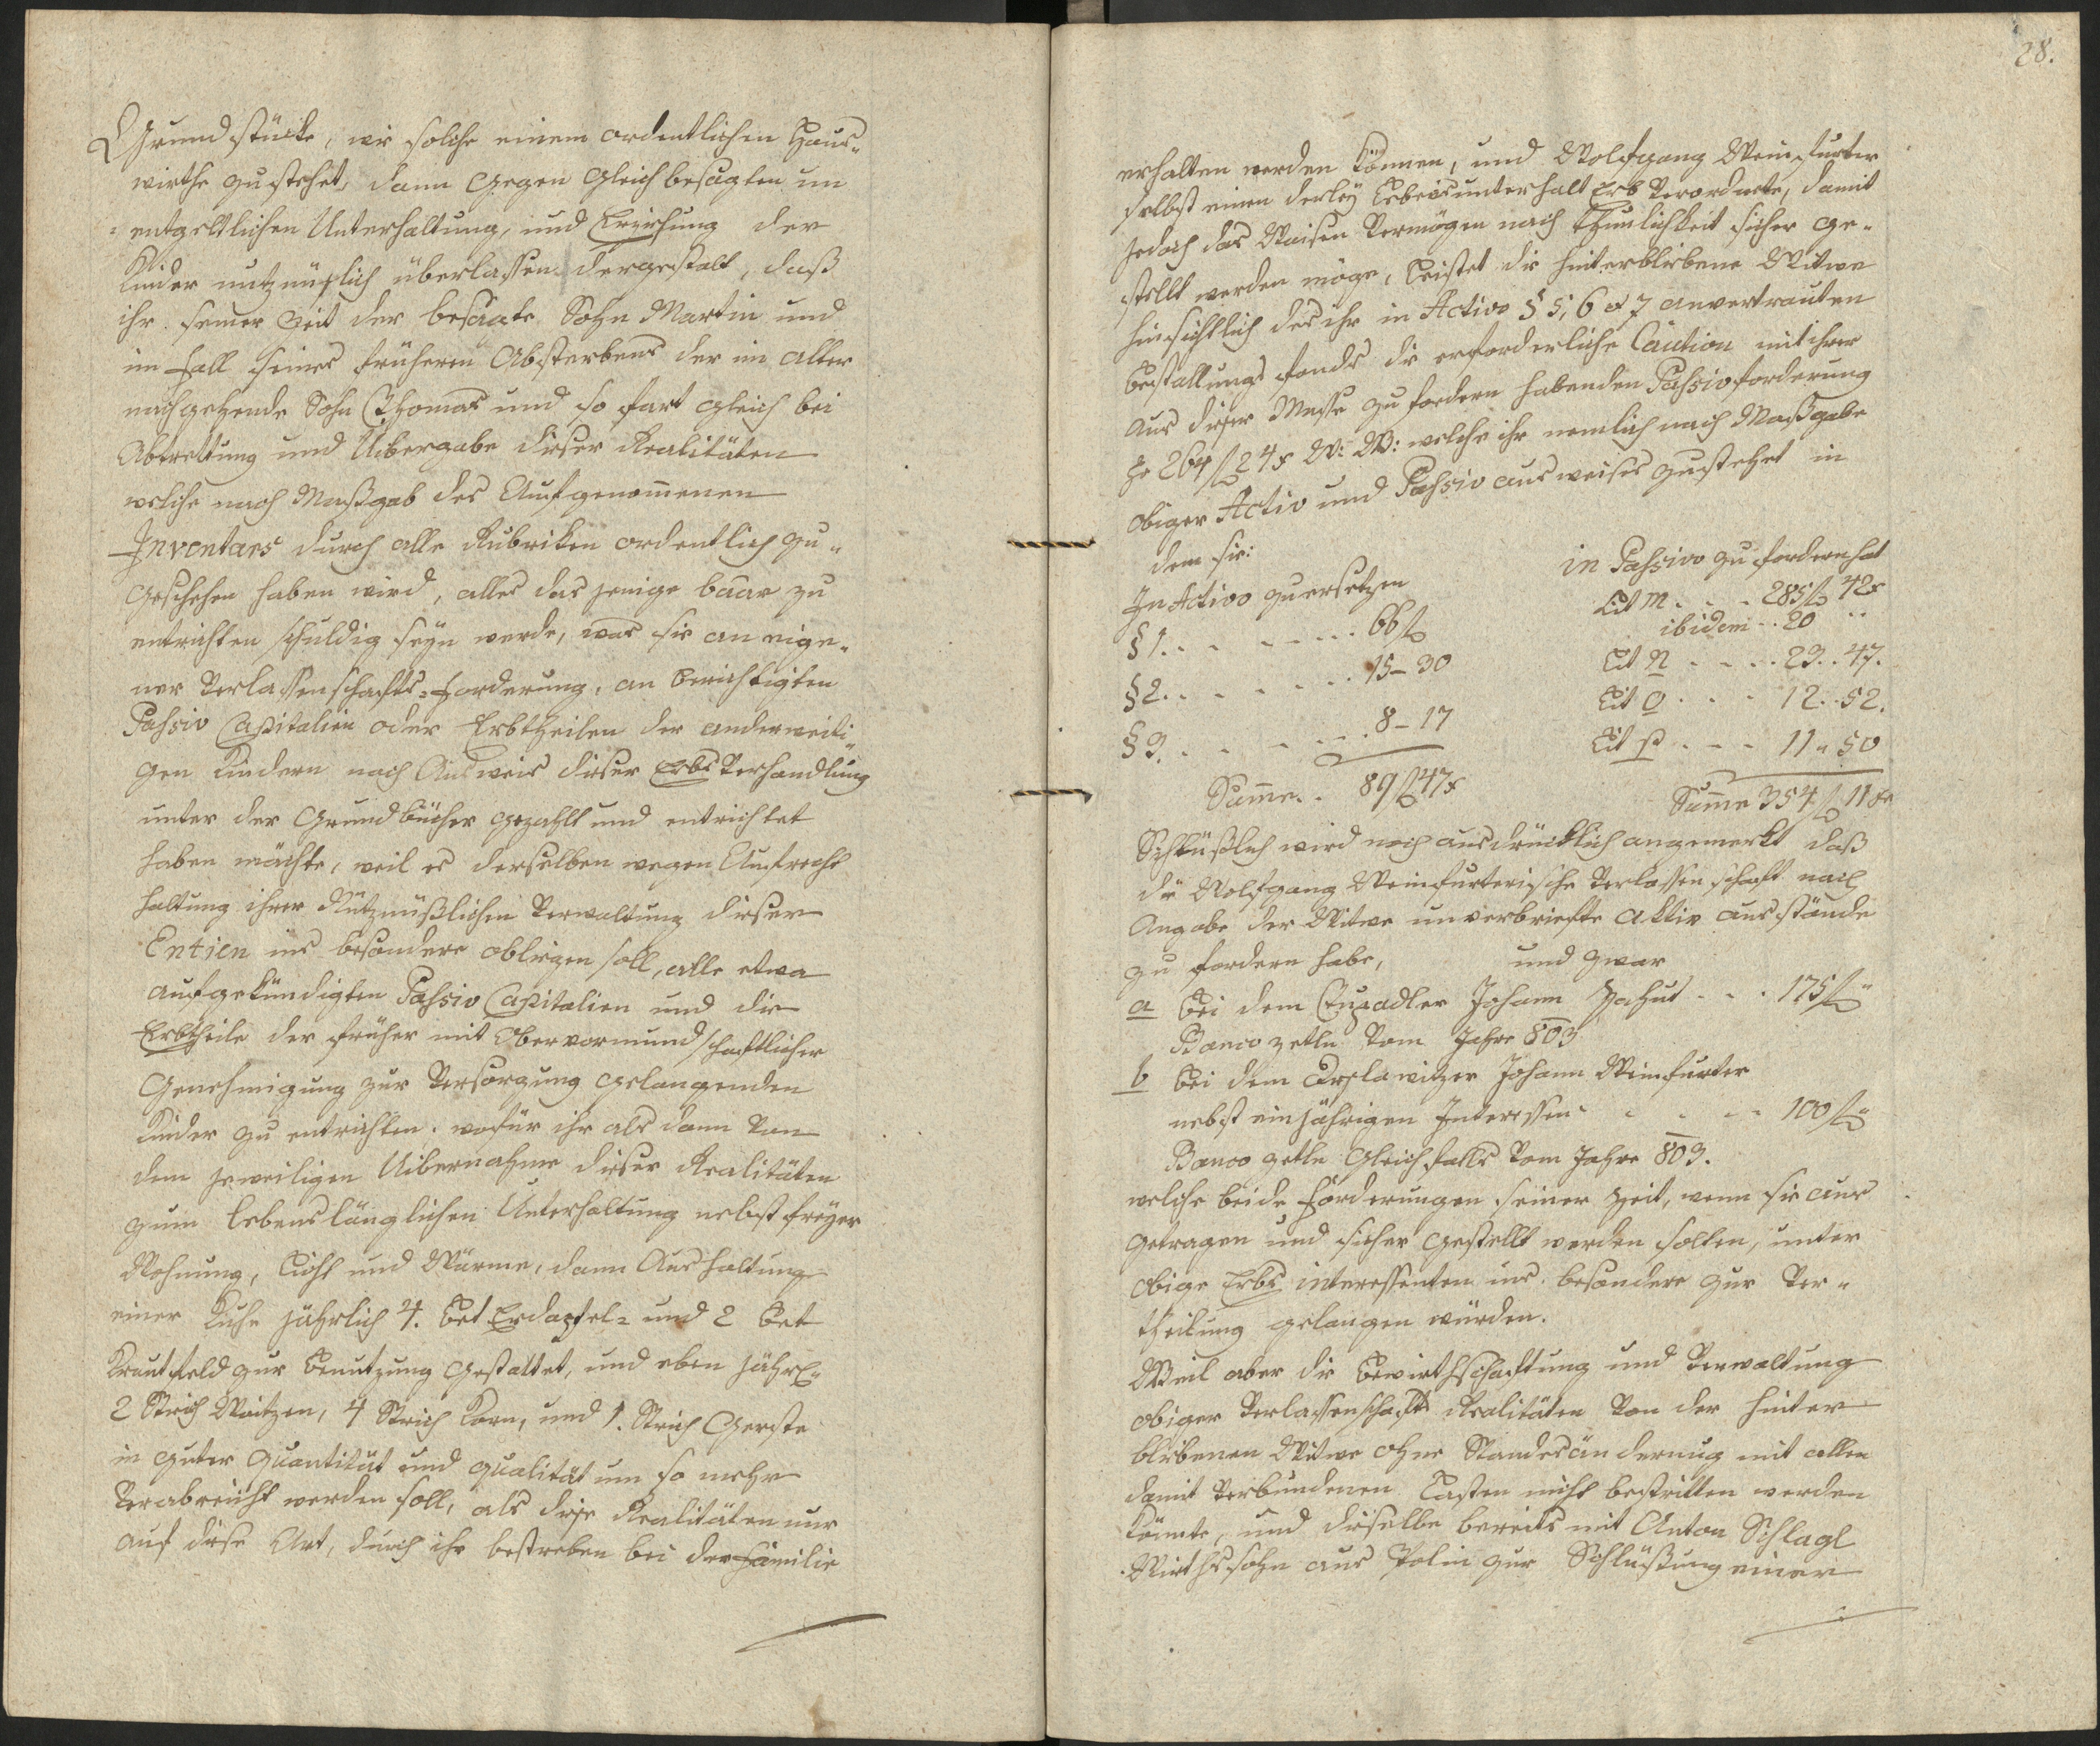 Grundstücke, wie solche einem ordentlichen Haus-
wirthe zustehet, dann gegen gleichbesagten un
=entgeltlichen Unterhaltung, und Erziehung der
Kinder nutznüßlich überlassen dergestalt, daß
ihr seiner Zeit der besagte Sohn Martin und
im Fall seines früheren Absterbens der im Alter
nachgehende Sohn Thomas und so fort gleich bei
Abtrettung und Uibergabe dieser Realitäten
welche nach Maßgab des Aufgenommenen
Inventars durch alle Rubriken ordentlich zu-
geschehen haben wird, alles das jenige baar zu
entrichten schuldig seyn werde, was sie an eige-
ner Verlassenschafts-Forderung, an berichtigten
Passiv Capitalien oder Erbtheilen der anderweiti-
gen Kindern nach Ausweis dieser Erbs Verhandlung
unter der Grundbücher gezahlt und entrichtet
haben möchte, weil es derselben wegen Aufrecht
haltung ihrer Nutznüßlichen Verwaltung dieser
Entien ins besondere obliegen soll, alle etwa
aufgekündigten Passiv Capitalien und die
Erbtheile der früher mit Obervormundschaftlicher
Genehmigung zur Versorgung gelangenden
Kinder zu entrichten. wofür ihr als dann von
dem jeweiligen Uibernahme dieser Realitäten
zum lebenslänglichen Unterhaltung nebst freyer
Wohnung, Licht und Wärme, dann Aushaltung
einer Kuhe jährlich 4. Bet Erdapfel- und 2 Bet
Krautfeld zur Benutzung gestattet, und eben jährl:
2 Strich Waitzen, 4 Strich Korn, und 1. Strich Gerste
in guter Quantität und Qualität um so mehr
Verabreicht werden soll, als diese Realitäten nur
auf diese Art, durch ihr bestreben bei der Familie
28.
erhalten werden können, und Wolfgang Weinfurter
selbst einen derley Lebensunterhalt Erb Verordnete, damit
jedoch das Waisen Vermögen nach Thunlichkeit sicher ge-
stellt werden möge, leistet die hinterbliebene Witwe
hinsichtlich des ihr in Activo § 5, 6 et 7 anvertrauten
Bestallungs fonds die erforderliche Caution mit ihrer
aus dieser Masse zu fordern habenden Passivforderung
pr 264 f 24 x W: W: welche ihr nemlich nach Maßgabe
obiger Activ und Passiv ausweises zustehet in
dem sie:
In Activo zu ersetzen
in Passivo zu fordern hat
§ 1. . . . . . . 66 f
Lit M . . . 285 f 42 x
ibidem . . 20 ..
§ 2. . . . . . . 15-30
Lit N . . . . 23. . 47.
§ 3. . . . . . . 8-17
Lit O . . . 12. . 52.
Lit P . . . 11 " 50
Summe. . 89 f 47 x
Summe 354 f 11 xr
Schlüßlich wird noch ausdrücklich angemerkt daß
die Wolfgang Weinfurterische Verlassenschaft nach
Angabe der Witwe unverbriefte Aktiv ausstände
zu fordern habe, und zwar
a bei dem Johann . . . 175 f "
Banco zetln Vom Jahre 803
b bei dem Johann Weinfurter
nebst einjährigen Interessen . . . . 100 f "
Banco zetln gleichfalls Vom Jahre 803.
welche beide Forderungen seiner Zeit, wenn sie aus
getragen und sicher gestellt werden sollten, unter
obige Erbs interessenten ins besondere zur Ver-
theilung gelangen würden.
Weil aber die Bewirthschaftung und Verwaltung
obiger Verlassenschafts Realitäten Von der hinter
bliebenen Witwe ohne Standesänderung mit allen
damit Verbundenen Lasten nicht bestritten werden
könnte, und dieselbe bereits mit Anton Schlagl
Wirthssohn aus Polin zur Schlüßung einer